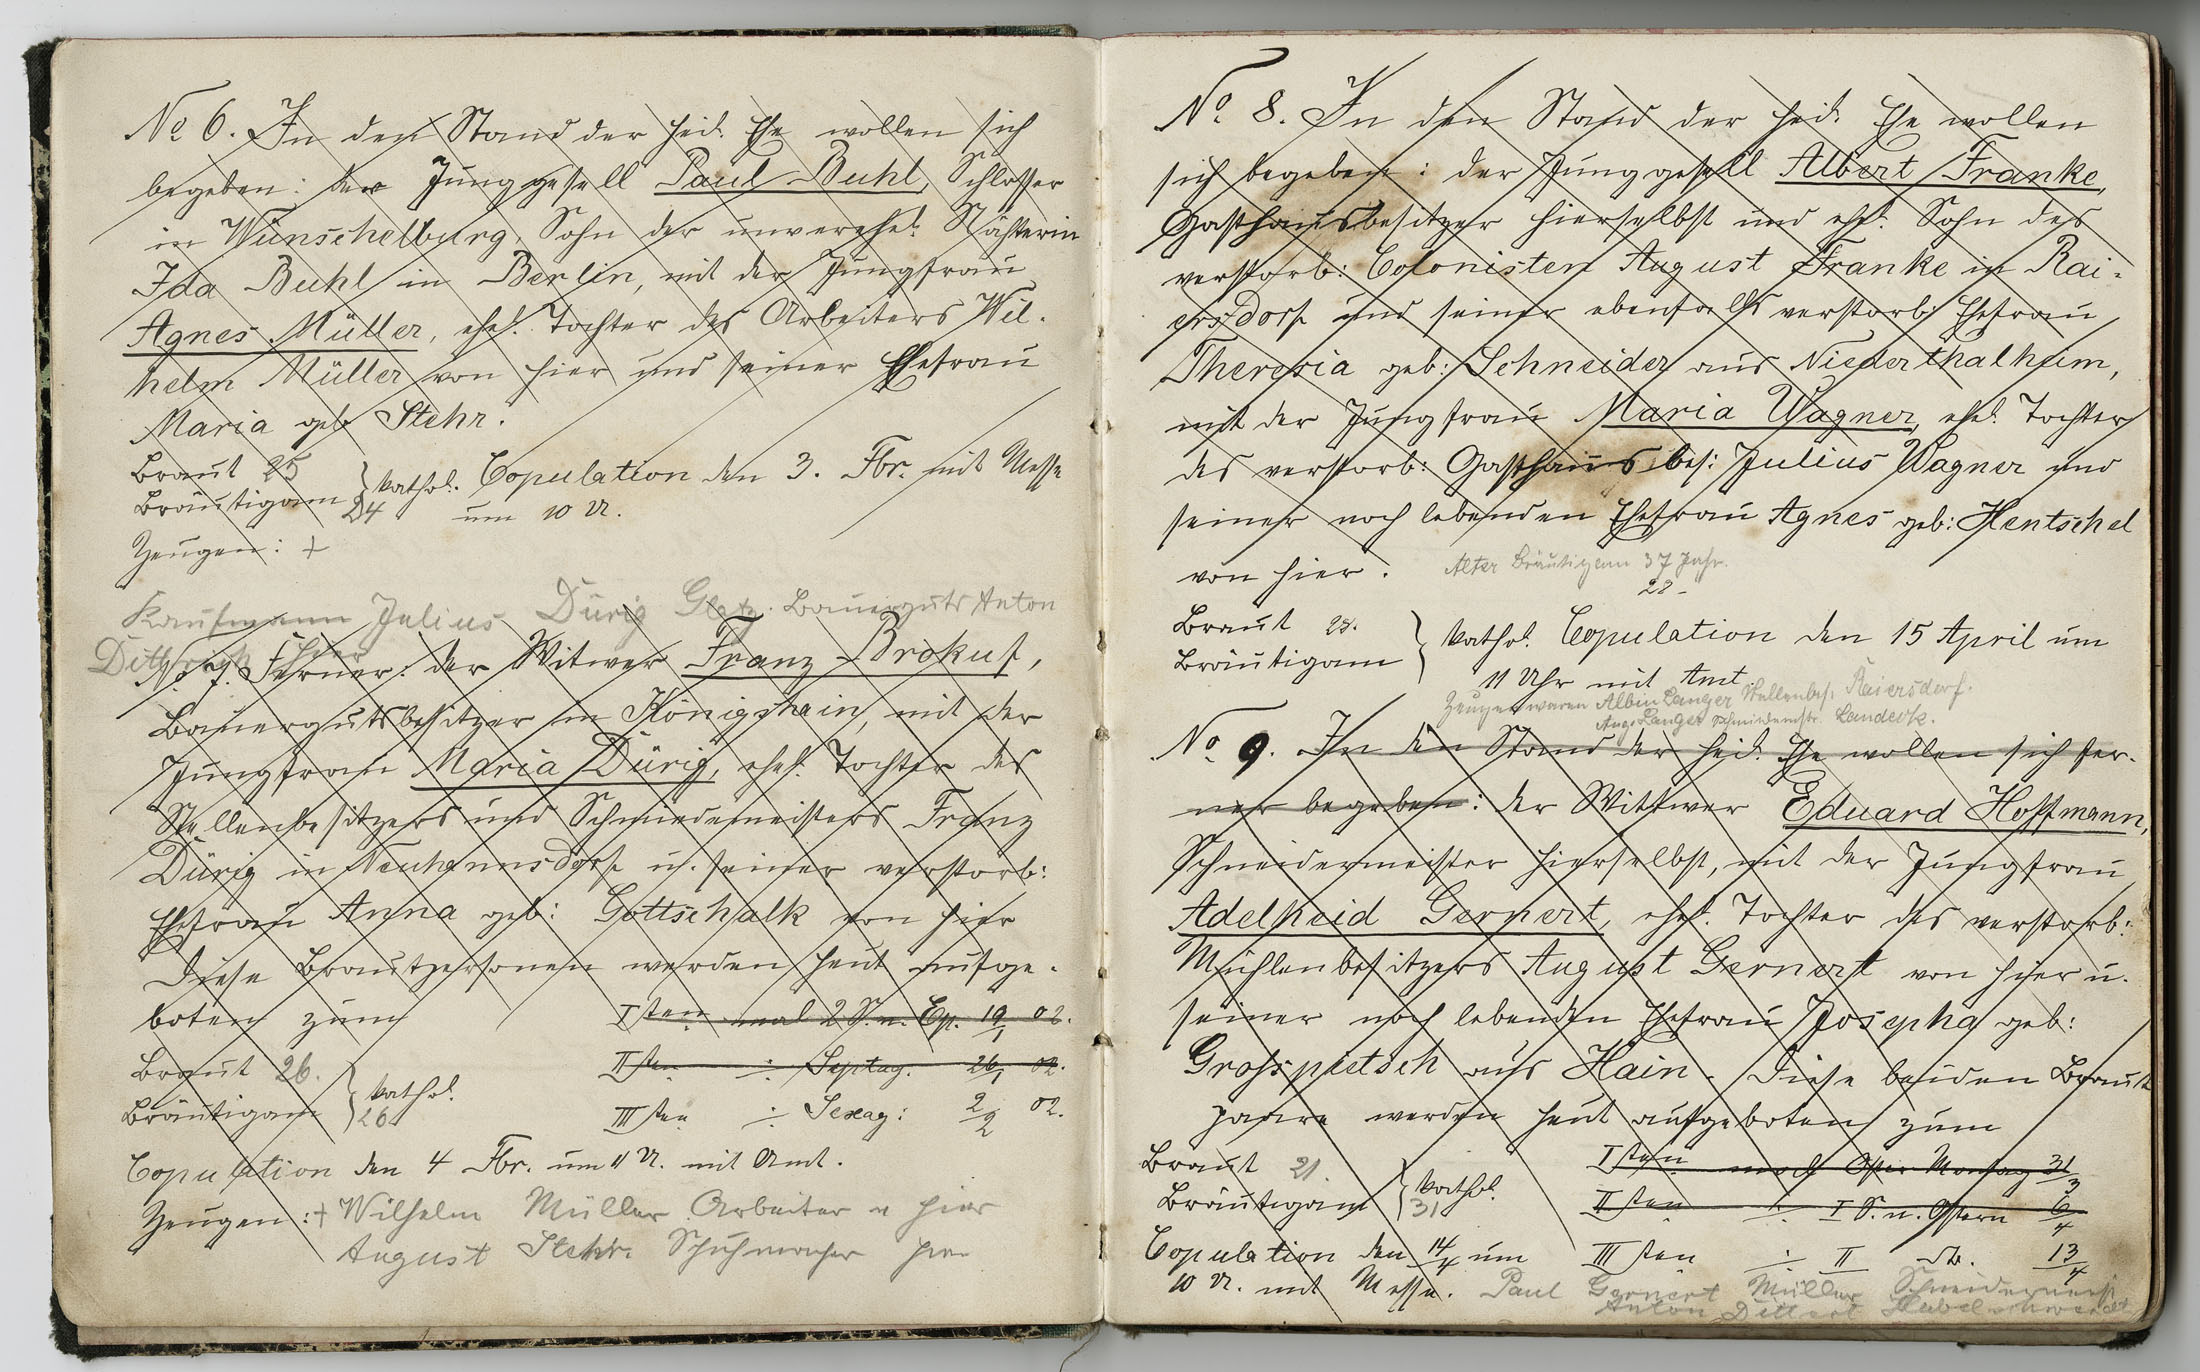 No 6. In den Stand der heil. Ehe wollen sich
begeben: der Junggesell Paul Buhl, Schlosser
in Wünschelburg, Sohn der unverehel.
Ida Buhl in Berlin, mit der Jungfrau
Agnes Müller, ehel. Tochter des Arbeiters Wil-
helm Müller von hier und seiner Ehefrau
Maria geb Stehr.
Braut 25
Bräutigam 24 } kathol. Copulation den 3. Fbr. mit Messe
um 10 U.
Zeugen: +
Kaufmann Julius Dürig Glatz. Bauerguts Anton
hier
No 7. Ferner: der Witwer Franz Brokuf,
Bauergutsbesitzer in Königshain, mit der
Jungfrau Maria Dürig, ehel. Tochter des
Stellenbesitzers und Schmiedemeisters Franz
Dürig in Neuhannsdorf u. seiner verstorb:
Ehefrau Anna geb: Gottschalk von hier
Diese Brautpersonen werden heut aufge-
boten zum Isten mal 2 S. n. Ep. 19/1 02.
IIten ÷ Septag. 26/1 02.
Braut 26.
Bräutigam 26 } kathol.
IIIten ÷ Sexag: 2/2 02.
Copulation den 4 Fbr. um 11 U. mit Amt.
Zeugen: + Wilhelm Müller Arbeiter v hier
August Stehr. Schuhmacher hier
No. 8. In den Stand der heil. Ehe wollen
sich begeben: der Junggesell Albert Franke,
Gasthausbesitzer hierselbst und ehel. Sohn des
verstorb: Colonisten August Franke in Rai-
ersdorf und seiner ebenfalls verstorb: Ehefrau
Theresia geb: Schneider aus Niederthalheim,
mit der Jungfrau Maria Wagner, ehel. Tochter
des verstorb: Gasthausbes: Julius Wagner und
seiner noch lebenden Ehefrau Agnes geb: Hentschel
von hier. Alter Bräutigam 37 Jahr.
28 -
Braut 28.
Bräutigam } kathol. Copulation den 15 April um
11 Uhr mit Amt.
Zeugen waren Albin Langer Stellenbes. Raiersdorf.
Aug. Langer Schmiedemstr. Landeck.
No. 9. In den Stand der heil. Ehe wollen sich fer-
ner begeben: der Wittwer Eduard Hoffmann,
Schneidermeister hierselbst, mit der Jungfrau
Adelheid Gernert, ehel. Tochter des verstorb:
Mühlenbesitzers August Gernert von hier u.
seiner noch lebenden Ehefrau Josepha geb:
Grosspietsch aus Hain. Diese beiden Braut
paare werden heut aufgeboten zum
Isten mal Oster Montag 31/3
Braut 21.
Bräutigam 31 } kathol.
IIten ÷ I S. n. Ostern 6/4
Copulation den 14/4 um IIIten ÷ II 13/4
10 U. mit Messe. Paul Gernert Müller
Anton Dittert Habelschwerdt